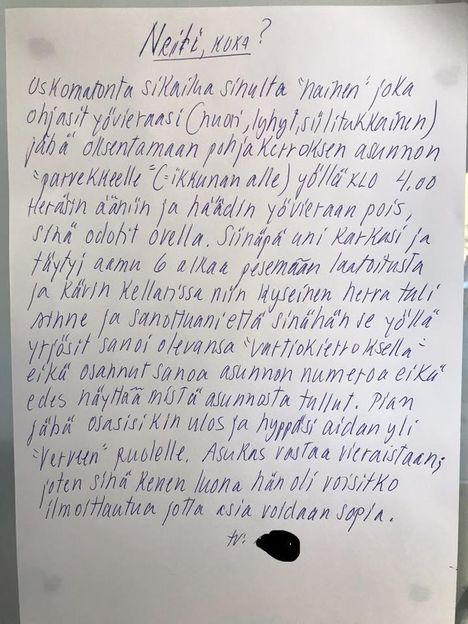 Neiti, KUKA?
Uskomatonta sikailua sinulta "nainen" joka
ohjasit yövieraasi (nuori, lyhyt, siilitukkainen)
jäbä oksentamaan pohjakerroksen asunnon
"parvekkeelle" (=ikkunan alle) yöllä KLO 4,00
Heräsin ääniin ja häädin yövieraan pois,
sinä odotit ovella. Siinäpä uni karkasi ja
täytyi aamu 6 alkaa pesemään laatoitusta
ja kävin kellarissa niin kyseinen herra tuli
sinne ja sanottuani että sinähän se yöllä
yrjösit sanoi olevansa "vartiokierroksella"
eikä osannut sanoa asunnon numeroa eikä
edes näyttää mistä asunnosta tullut. Pian
jäbä osasisikin ulos ja hyppäsi aidan yli
"Verveen" puolelle. Asukas vastaa vieraistaan;
joten sinä kenen luona hän oli voisitko
ilmoittautua jotta asia voidaan sopia.
tv: